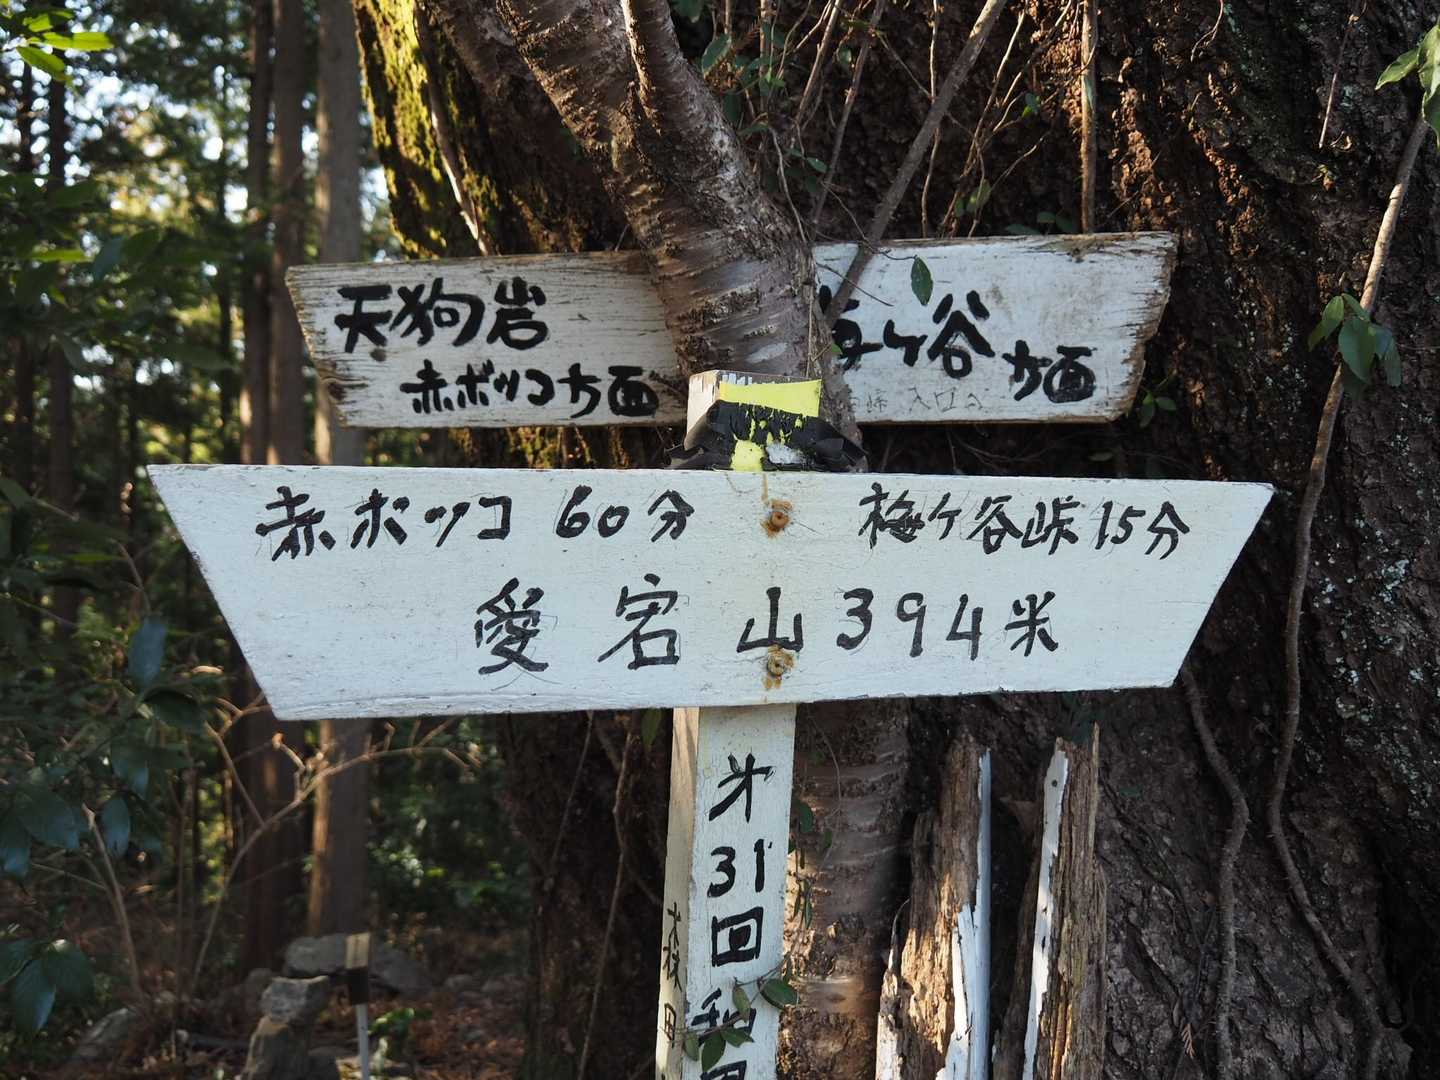 天狗岩
赤ボッコ方面
梅ヶ谷
方面
赤ボッコ 60分
梅ヶ谷峠 15分
愛宕山394米
才31回